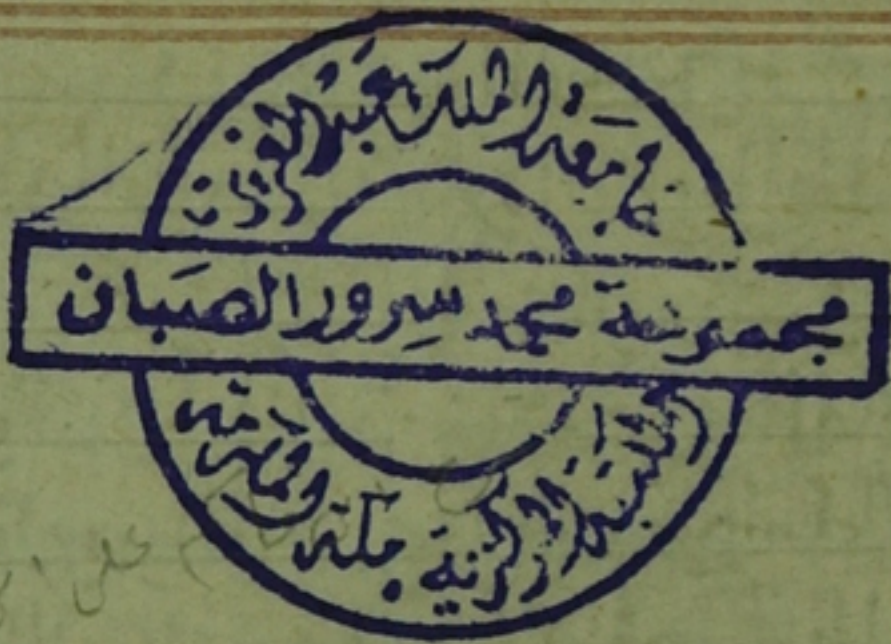 جامعة الملك عبد العزيز
مجموعة محمد سرور الصبان
المكتبة المركزية بمكة المكرمة
على